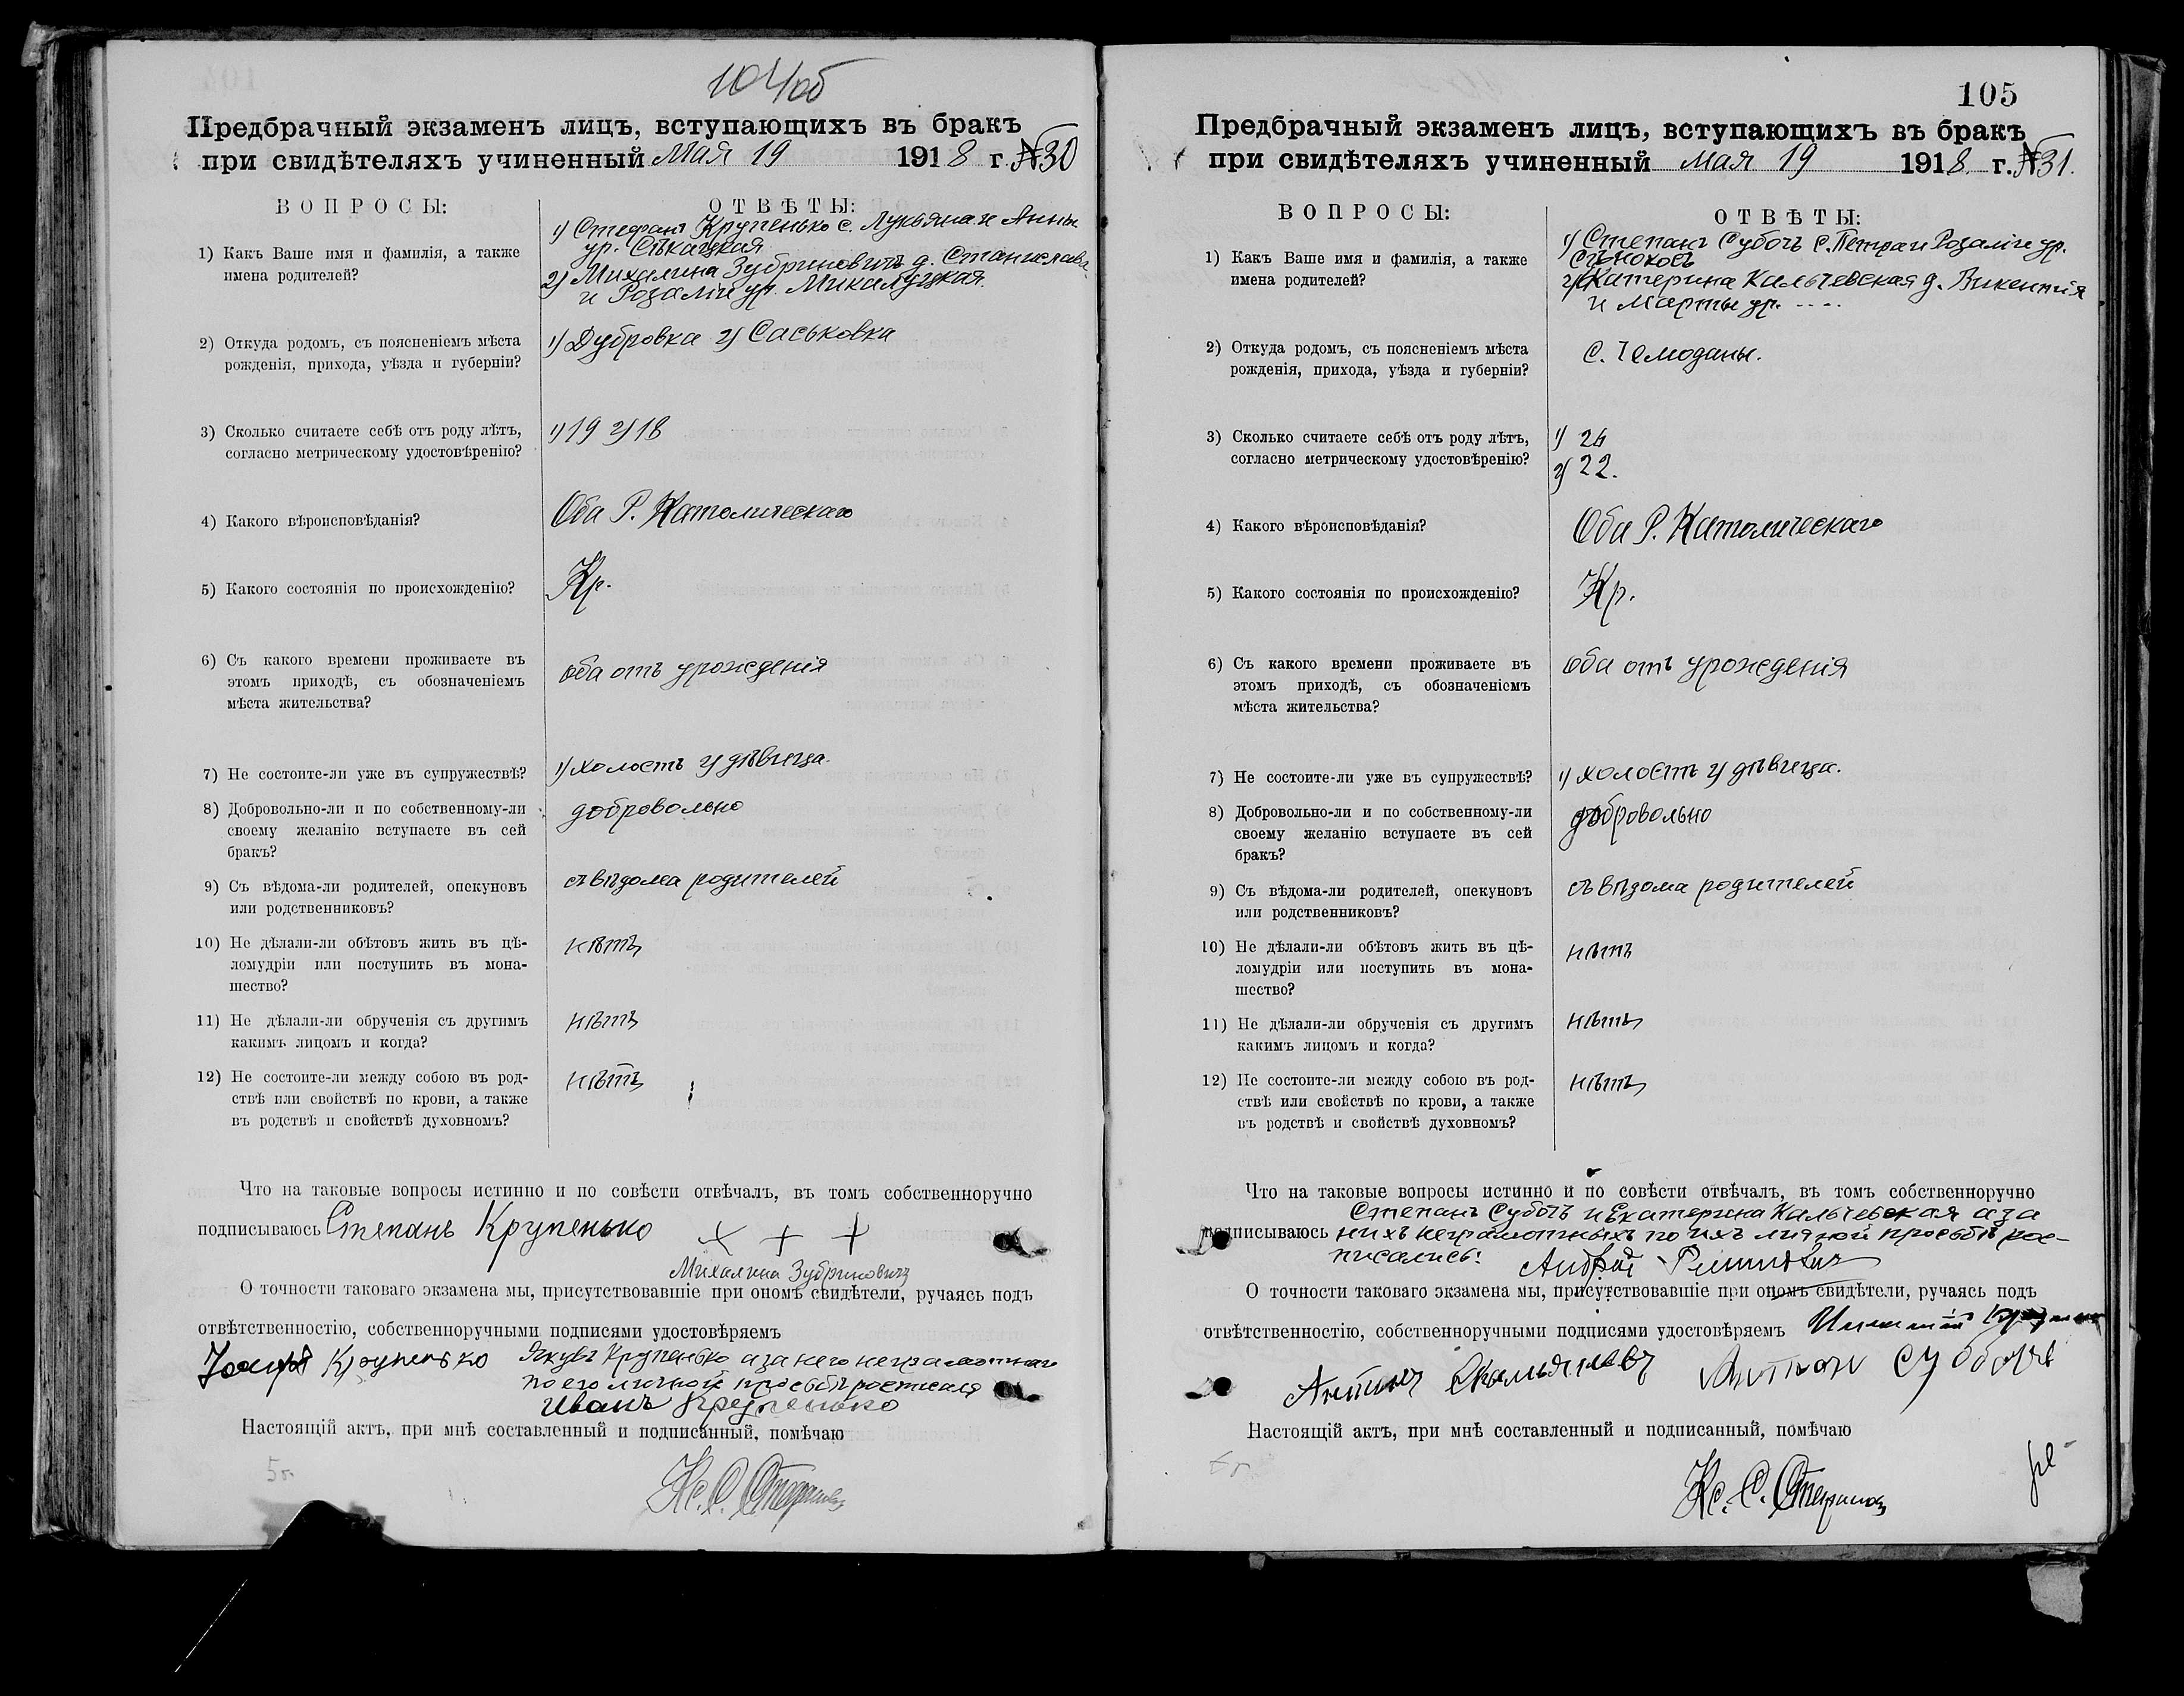 104об
Предбрачный экзаменъ лицъ, вступающихъ въ бракъ
при свидѣтеляхъ учиненный Мая 19 1918 г. №30
ВОПРОСЫ:
ОТВѢТЫ:
1) Какъ Ваше имя и фамилія, а также
имена родителей?
1) Стефанъ Крупенько с. Лукьяна и Анны
ур. Сѣкацкая
2) Михалина Зубриновичъ д. Станислава
и Розаліи ур. Микалуцкая.
2) Откуда родомъ, съ поясненіемъ мѣста
рожденія, прихода, уѣзда и губерніи?
1) Дубровка 2) Саськовка
3) Сколько считаете себѣ отъ роду лѣтъ,
согласно метрическому удостовѣренію?
1) 19 2) 18
4) Какого вѣроисповѣданія?
Оба Р. Католическаго
5) Какого состоянія по происхожденію?
Кр.
6) Съ какого времени проживаете въ
этомъ приходѣ, съ обозначеніемъ
мѣста жительства?
оба отъ урожденія
7) Не состоите-ли уже въ супружествѣ?
1) холостъ 2) дѣвица.
8) Добровольно-ли и по собственному-ли
своему желанію вступаете въ сей
бракъ?
добровольно
9) Съ вѣдома-ли родителей, опекуновъ
или родственниковъ?
съ вѣдома родителей
10) Не дѣлали-ли обѣтовъ жить въ цѣ-
ломудріи или поступить въ мона-
шество?
нѣтъ
11) Не дѣлали-ли обрученія съ другимъ
какимъ лицомъ и когда?
нѣтъ
12) Не состоите-ли между собою въ род-
ствѣ или свойствѣ по крови, а также
въ родствѣ и свойствѣ духовномъ?
нѣтъ
Что на таковые вопросы истинно и по совѣсти отвѣчалъ, въ томъ собственноручно
подписываюсь Степанъ Крупенько + + +
Михалина Зубриновичъ
О точности таковаго экзамена мы, присутствовавшіе при ономъ свидѣтели, ручаясь подъ
отвѣтственностію, собственноручными подписями удостовѣряемъ
Крупенько Якувъ Крупенько а за него неграмотнаго
по его личной просьбѣ росписался
Иванъ Крупенько
Настоящій актъ, при мнѣ составленный и подписанный, помѣчаю
Кс. С.
105
Предбрачный экзаменъ лицъ, вступающихъ въ бракъ
при свидѣтеляхъ учиненный мая 19 1918 г. №31.
ВОПРОСЫ:
ОТВѢТЫ:
1) Какъ Ваше имя и фамилія, а также
имена родителей?
1) Степанъ Субочъ с. Петра и Розаліи ур.
2) Катерина Кальчевская д. Викентія
и Марты ур. ----
2) Откуда родомъ, съ поясненіемъ мѣста
рожденія, прихода, уѣзда и губерніи?
с. Чемоданы.
3) Сколько считаете себѣ отъ роду лѣтъ,
согласно метрическому удостовѣренію?
1) 26
2) 22.
4) Какого вѣроисповѣданія?
Оба Р. Католическаго
5) Какого состоянія по происхожденію?
Кр.
6) Съ какого времени проживаете въ
этомъ приходѣ, съ обозначеніемъ
мѣста жительства?
оба отъ урожденія
7) Не состоите-ли уже въ супружествѣ?
1) холостъ 2) дѣвица.
8) Добровольно-ли и по собственному-ли
своему желанію вступаете въ сей
бракъ?
добровольно
9) Съ вѣдома-ли родителей, опекуновъ
или родственниковъ?
съ вѣдома родителей
10) Не дѣлали-ли обѣтовъ жить въ цѣ-
ломудріи или поступить въ мона-
шество?
нѣтъ
11) Не дѣлали-ли обрученія съ другимъ
какимъ лицомъ и когда?
нѣтъ
12) Не состоите-ли между собою въ род-
ствѣ или свойствѣ по крови, а также
въ родствѣ и свойствѣ духовномъ?
нѣтъ
Что на таковые вопросы истинно и по совѣсти отвѣчалъ, въ томъ собственноручно
Степанъ Субочъ и Екатерина Кальчевская а за
подписываюсь нихъ неграмотныхъ по ихъ личной просьбѣ рос-
писались: Андрей
О точности таковаго экзамена мы, присутствовавшіе при ономъ свидѣтели, ручаясь подъ
отвѣтственностію, собственноручными подписями удостовѣряемъ
Антонъ
Настоящій актъ, при мнѣ составленный и подписанный, помѣчаю
Кс. С.